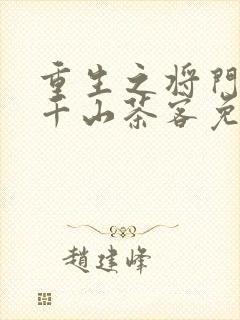 重生之将门
千山茶客免
趙建峰